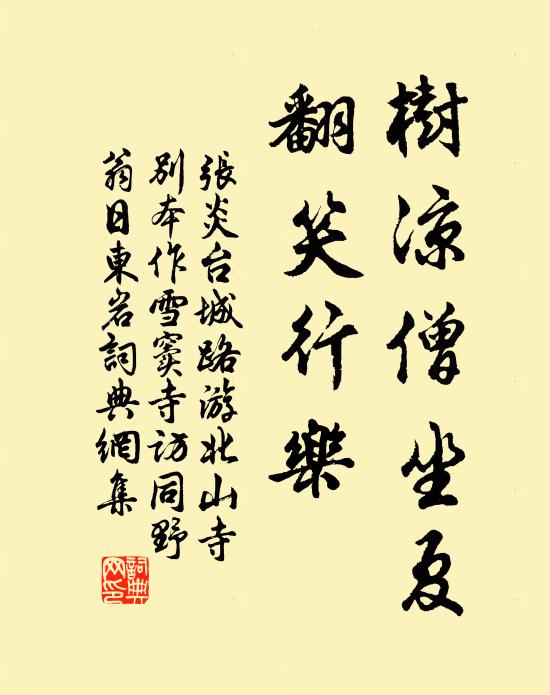 樹凉僧坐夏
翻笑行樂
張炎台城路游北山寺
別本作雪竇寺訪同野
翁日東岩詞典網集
詞典網印